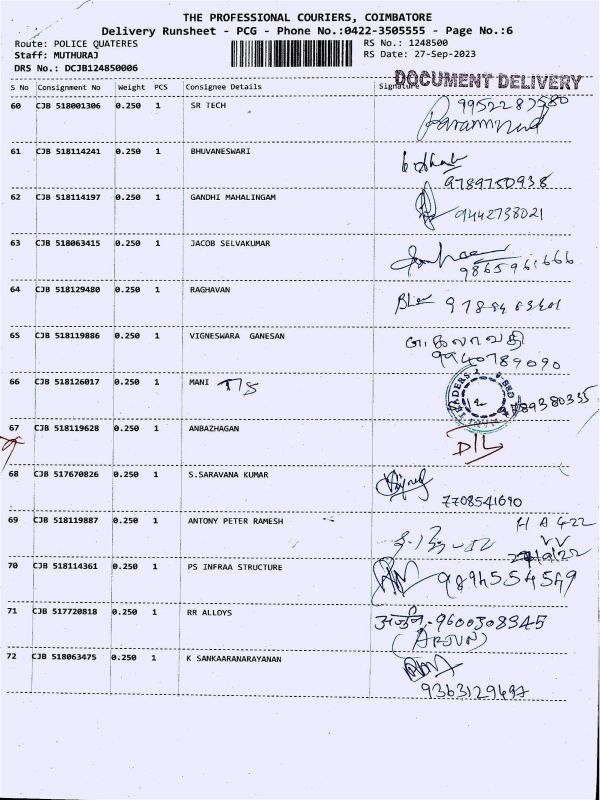 THE PROFESSIONAL COURIERS, COIMBATORE
Delivery Runsheet - PCG - Phone No.:0422-3505555 - Page No.:6
Route: POLICE QUATERES RS No.: 1248500
Staff: MUTHURAJ RS Date: 27-Sep-2023
DRS No.: DCJB124850006
DOCUMENT DELIVERY
S No Consignment No Weight PCS Consignee Details Signature
60 CJB 518001306 0.250 1 SR TECH
61 CJB 518114241 0.250 1 BHUVANESWARI
9789750938
62 CJB 518114197 0.250 1 GANDHI MAHALINGAM
9442738021
63 CJB 518063415 0.250 1 JACOB SELVAKUMAR
9865961666
64 CJB 518129480 0.250 1 RAGHAVAN
65 CJB 518119886 0.250 1 VIGNESWARA GANESAN
9940789090
66 CJB 518126017 0.250 1 MANI T/S
9789380335
67 CJB 518119628 0.250 1 ANBAZHAGAN
D/L
68 CJB 517670826 0.250 1 S.SARAVANA KUMAR
7708541690
69 CJB 518119887 0.250 1 ANTONY PETER RAMESH
70 CJB 518114361 0.250 1 PS INFRAA STRUCTURE
9894554549
71 CJB 517720818 0.250 1 RR ALLOYS
अर्जुन - 9600308345
(ARJUN)
72 CJB 518063475 0.250 1 K SANKAARANARAYANAN
9363129697